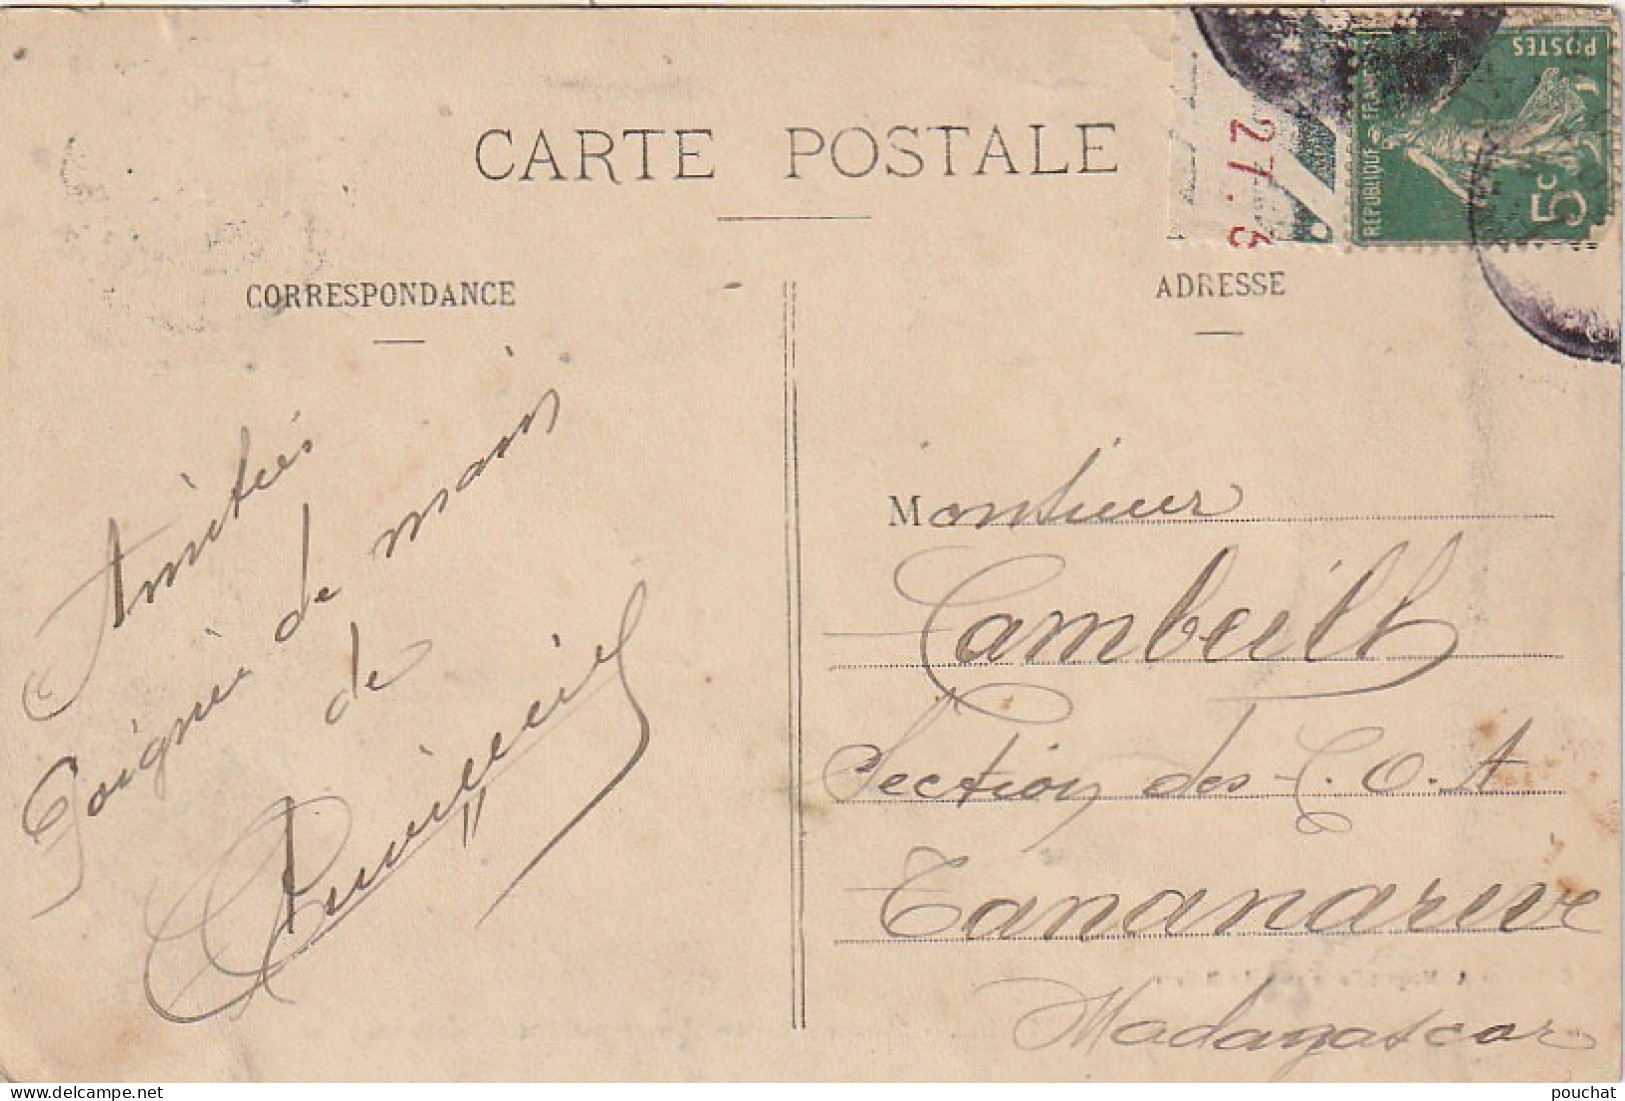 CARTE POSTALE
CORRESPONDANCE
ADRESSE
POSTES
REPUBLIQUE FRANÇAISE
5c
27.
Amitiés
Poignée de main
de
Monsieur
Cambeilh
Section des C.O.A
Tananarive
Madagascar
pouchat